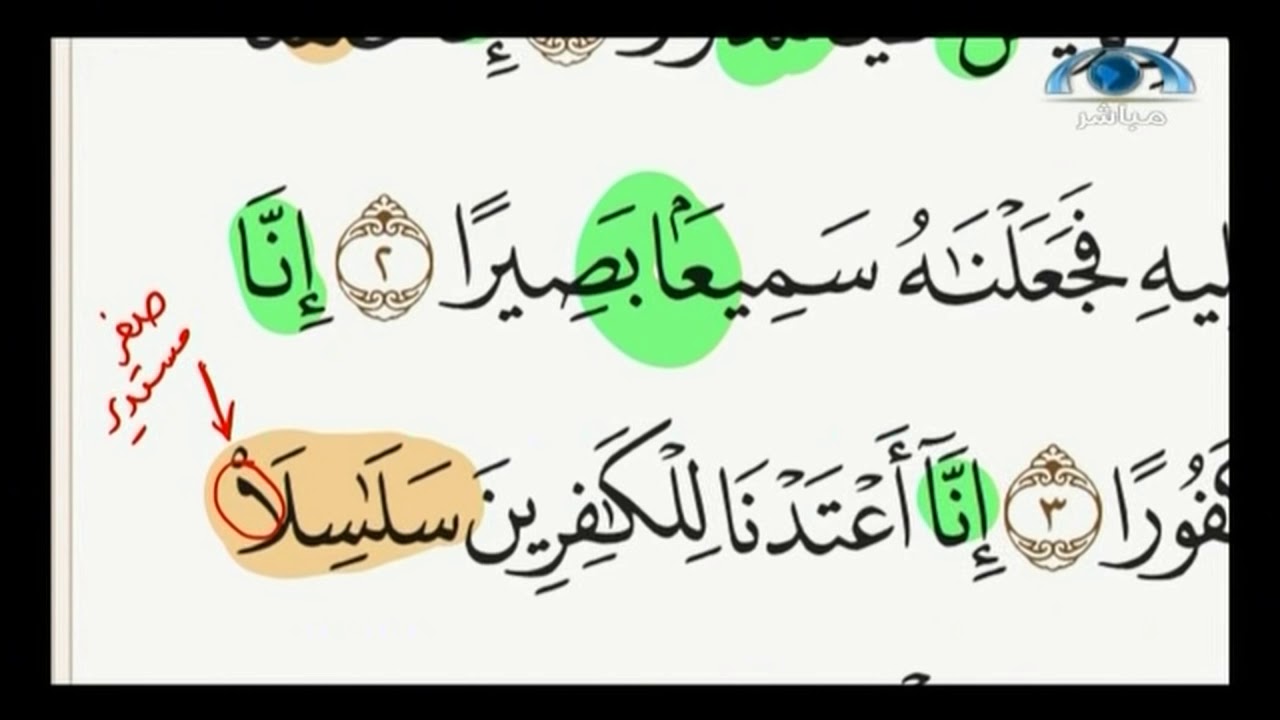 مباشر
نَّبْتَلِيهِ فَجَعَلْنَٰهُ سَمِيعَۢا بَصِيرًا ٢ إِنَّا
صفر
مستدير
كَفُورًا ٣ إِنَّآ أَعْتَدْنَا لِلْكَٰفِرِينَ سَلَٰسِلَا۟